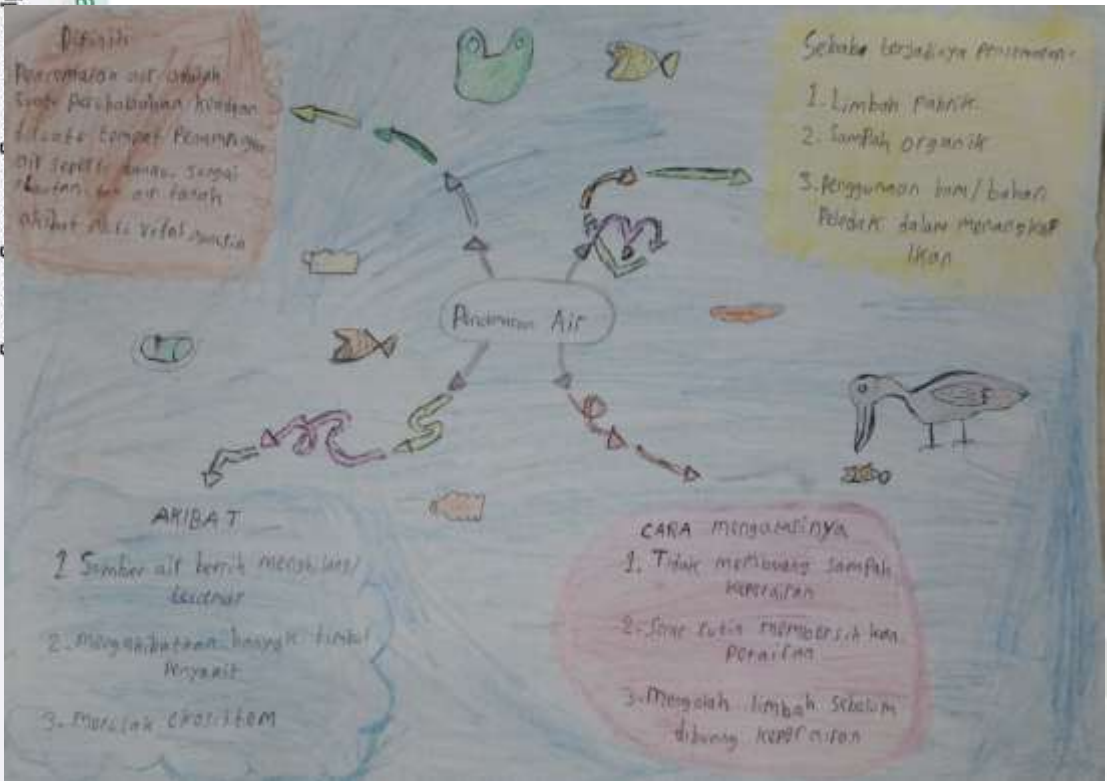 Definiti
Pencemaran air adalah
Suatu perubahan keadaan
di suatu tempat penampungan
air seperti danau, sungai
lautan, dan air tanah
akibat aktivitas manusia
Sebabs terjadinya pencemaran
1. Limbah pabrik
2. Sampah organik
3. Penggunaan bom/bahan
Peledak dalam menangkap
Ikan
Pencemaran Air
AKIBAT
1 Sumber air bersih menghilang/
tercemar
2. mengakibatkan banyak timbul
Penyakit
3. merusak ekosistem
CARA mengatasinya
1. Tidak membuang sampah
keperairan
2. rutin membersihkan
Perairan
3. Mengolah limbah sebelum
dibuang keperairan